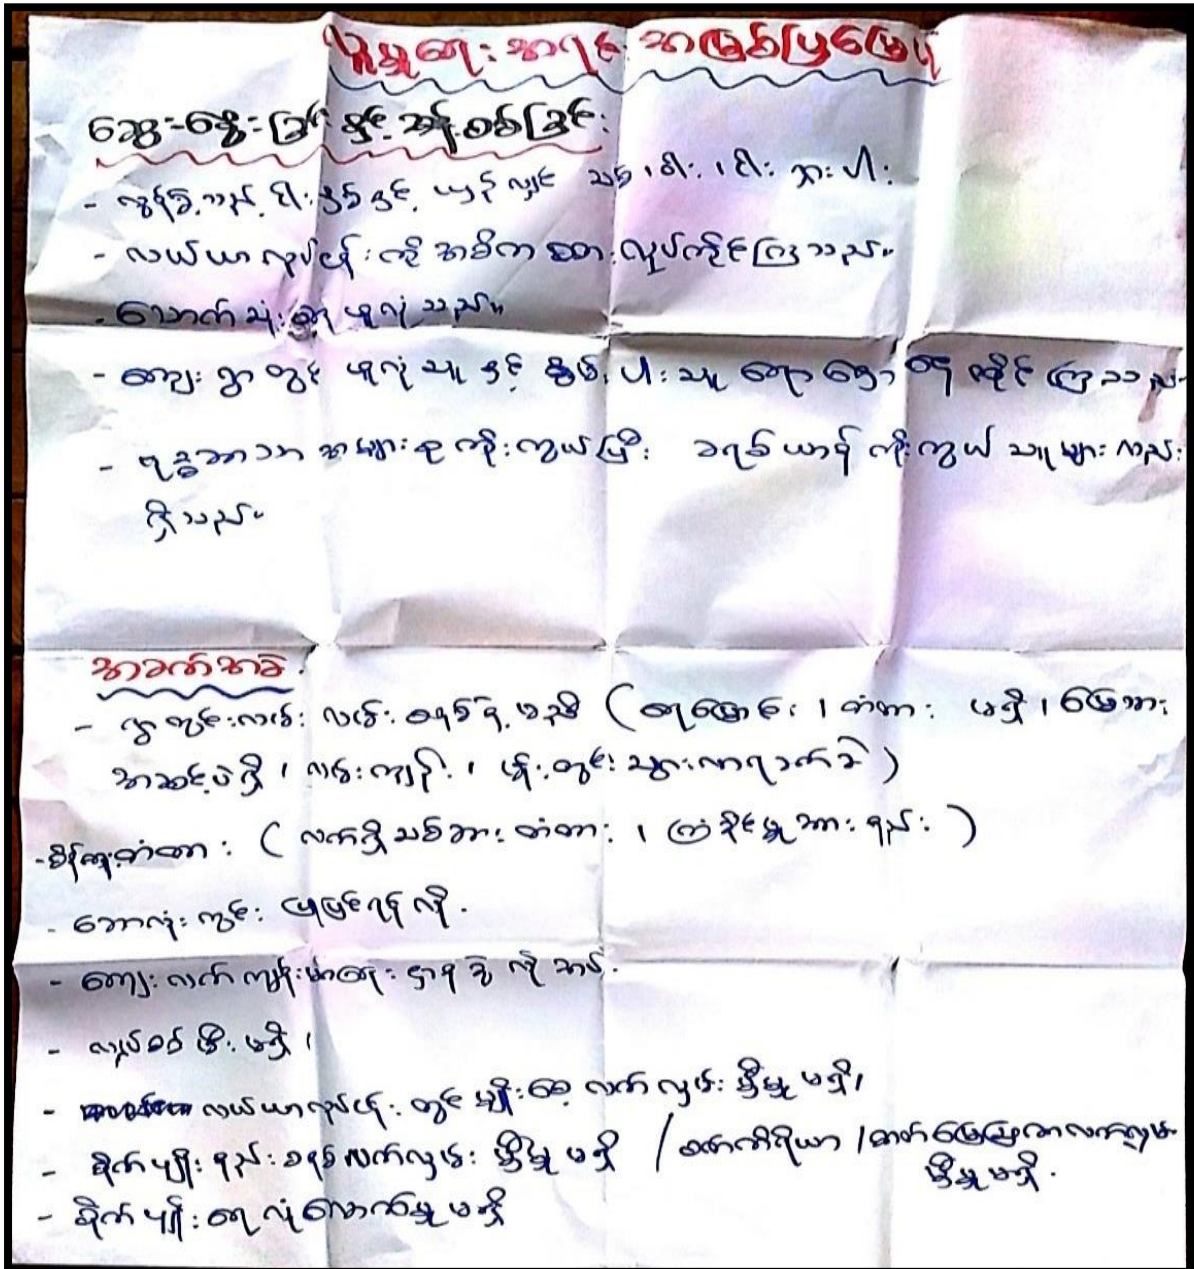 လူမှုရေး အရင်း အမြစ်ပြမြေပုံ
ဆွေးနွေးခြင်း နှင့် အန်စစ်ခြင်း
- လွန်ခဲ့သည့် ငါးနှစ်နှင့် ယှဉ်လျှင် သစ်၊ ဝါး၊ ငါး ရှားပါး
- လယ်ယာလုပ်ငန်းကို အဓိကထား လုပ်ကိုင်ကြသည်။
- သောက်သုံးရေ ဖူလုံသည်။
- ကျေးရွာတွင် ဖူလုံသူ နှင့် နွမ်းပါးသူ ရောနှော နေထိုင်ကြသည်
- ဗုဒ္ဓဘာသာ အများစု ကိုးကွယ်ပြီး ခရစ်ယာန် ကိုးကွယ်သူများလည်း
ရှိသည်။
အခက်အခဲ
- ရွာတွင်းလမ်း လမ်း မညီ (ရေမြောင်း၊ တံတား မရှိ၊ မြေသား
အဆင့်ပဲရှိ၊ လမ်းကျဉ်း၊ မိုးတွင်း သွားလာရခက်ခဲ)
- တံတား (လက်ရှိသစ်သားတံတား၊ ကြံ့ခိုင်မှုအားနည်း)
- ဘောလုံးကွင်း ပြုပြင်ရန်လို
- ကျေးလက်ကျန်းမာရေး ဌာနခွဲ လိုအပ်
- လျှပ်စစ်မီး မရှိ၊
- လယ်ယာလုပ်ငန်းတွင် မျိုးစေ့ လက်လှမ်းမှီမှု မရှိ၊
- စိုက်ပျိုးနည်းစနစ် လက်လှမ်းမှီမှု မရှိ / စက်ကိရိယာ / ဓာတ်မြေဩဇာ လက်လှမ်း
မှီမှု မရှိ.
- စိုက်ပျိုးရေ လုံလောက်မှု မရှိ